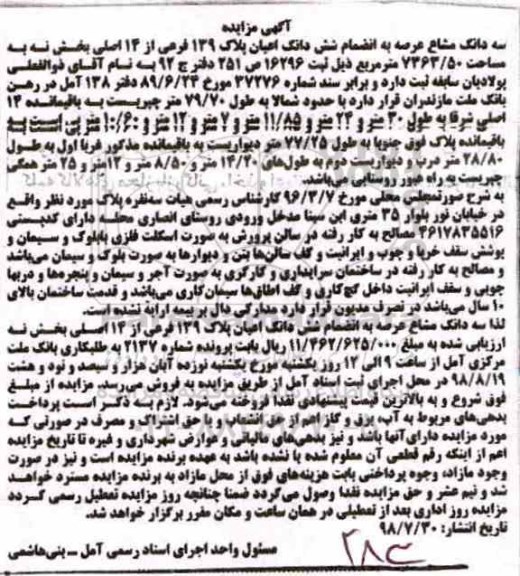 آگهی مزایده
سه دانگ مشاع عرصه به انضمام شش دانگ اعیان پلاک ۱۳۹ فرعی از ۱۴ اصلی بخش نه به
مساحت ۷۳۶۳/۵۰ مترمربع ذیل ثبت ۱۶۲۹۶ ص ۲۵۱ دفتر ج ۹۲ به نام آقای ذوالفعلی
پولادیان سابقه ثبت دارد و برابر سند شماره ۳۷۲۷۶ مورخ ۸۹/۶/۲۳ دفتر ۱۳۸ آمل در رهن
بانک ملت مازندران قرار دارد با حدود شمالا به طول ۷۹/۷۰ متر چپریست به باقیمانده ۱۴
اصلی شرقا به طول ۳۰ متر و ۲۴ متر و ۱۱/۸۵ متر و ۷ متر و ۱۲ متر و ۱۰/۶۰ متر پی است به
باقیمانده پلاک فوق جنوبا به طول ۷۷/۲۵ متر دیواریست به باقیمانده مذکور غربا اول به طول
۲۸/۸۰ متر درب و دیواریست دوم به طول‌های ۱۴/۲۰ متر و ۸/۵۰ متر و ۱۲متر و ۲۵ متر همگی
چپریست به راه عبور روستایی می‌باشد.
به شرح صورتمجلس محلی مورخ ۹۶/۳/۷ کارشناس رسمی هیات سه‌نفره پلاک مورد نظر واقع
در خیابان نور بلوار ۳۵ متری ابن سینا مدخل ورودی روستای انصاری محله دارای کدپستی
۴۶۱۷۸۳۵۵۱۶ مصالح به کار رفته در سالن پرورش به صورت اسکلت فلزی بابلوک و سیمان و
پوشش سقف خرپا و چوب و ایرانیت و کف سالن‌ها بتن و دیوارها به صورت بلوک و سیمان می‌باشد
و مصالح به کار رفته در ساختمان سرایداری و کارگری به صورت آجر و سیمان و پنجره‌ها و دربها
چوبی و سقف ایرانیت داخل گچ‌کاری و کف اطاق‌ها سیمان‌کاری می‌باشد و قدمت ساختمان بالای
۱۰ سال می‌باشد در تصرف مدیون قرار دارد مدارکی دال بر بیمه ارایه نشده است.
لذا سه دانگ مشاع عرصه به انضمام شش دانگ اعیان پلاک ۱۳۹ فرعی از ۱۴ اصلی بخش نه
ارزیابی شده به مبلغ ۱۱/۴۶۲/۶۲۵/۰۰۰ ریال بابت پرونده شماره ۲۱۳۷ به طلبکاری بانک ملت
مرکزی آمل از ساعت ۹ الی ۱۲ روز یکشنبه مورخ یکشنبه نوزده آبان هزار و سیصد و نود و هشت
۹۸/۸/۱۹ در محل اجرای ثبت اسناد آمل از طریق مزایده به فروش می‌رسد. مزایده از مبلغ
فوق شروع و به بالاترین قیمت پیشنهادی نقدا فروخته می‌شود. لازم به ذکر است پرداخت
بدهی‌های مربوط به آب، برق و گاز اعم از حق انشعاب و یا حق اشتراک و مصرف در صورتی که
مورد مزایده دارای آنها باشد و نیز بدهی‌های مالیاتی و عوارض شهرداری و غیره تا تاریخ مزایده
اعم از اینکه رقم قطعی آن معلوم شده یا نشده باشد به عهده برنده مزایده است و نیز در صورت
وجود مازاد، وجوه پرداختی بابت هزینه‌های فوق از محل مازاد به برنده مزایده مسترد خواهد
شد و نیم عشر و حق مزایده نقدا وصول می‌گردد ضمنا چنانچه روز مزایده تعطیل رسمی گردد
مزایده روز اداری بعد از تعطیلی در همان ساعت و مکان مقرر برگزار خواهد شد.
تاریخ انتشار: ۹۸/۷/۳۰
مسئول واحد اجرای اسناد رسمی آمل – بنی‌هاشمی